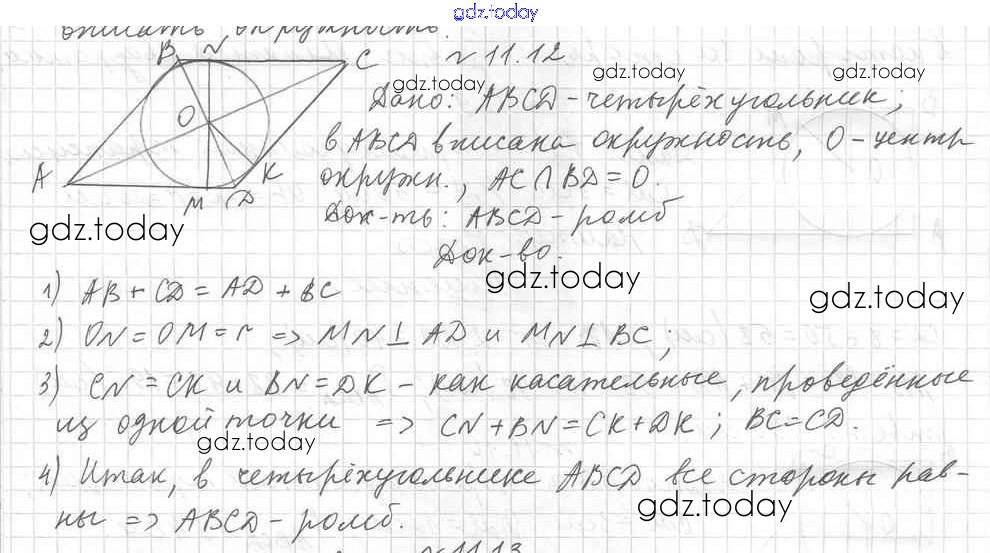 gdz.today
описать окружность.
N 11.12
B N C
O
A K
M D
gdz.today gdz.today gdz.today
Дано: ABCD – четырёхугольник;
в ABCD вписана окружность, O – центр
окружн., AC ∩ BD = O.
Док-ть: ABCD – ромб
gdz.today
Док-во.
gdz.today
gdz.today
1) AB + CD = AD + BC
2) ON = OM = r => MN ⊥ AD и MN ⊥ BC;
3) CN = CK и BN = DK – как касательные, проведённые
из одной точки => CN + BN = CK + DK; BC = CD.
gdz.today
4) Итак, в четырёхугольнике ABCD все стороны рав-
ны => ABCD – ромб.
gdz.today
N 11.13